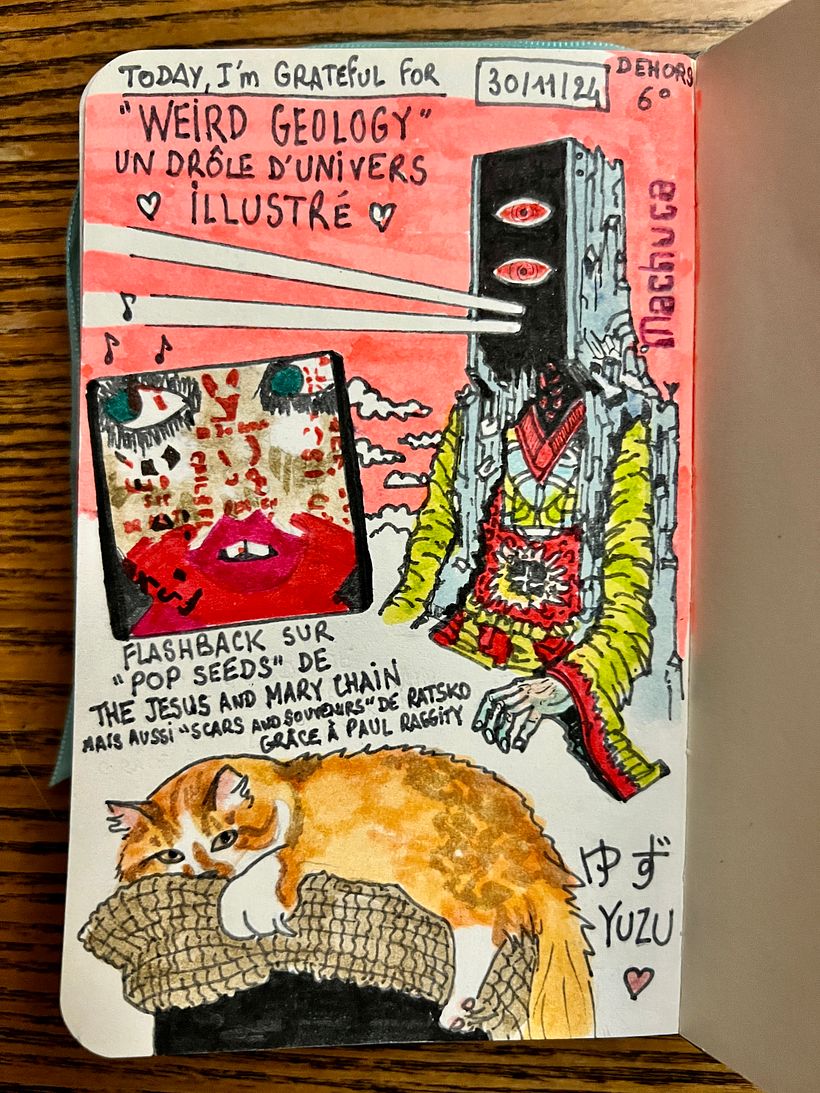 TODAY, I'm GRATEFUL FOR
30/11/24
DEHORS
6°
"WEIRD GEOLOGY"
UN DRÔLE D'UNIVERS
ILLUSTRÉ
Machuca
FLASHBACK SUR
"POP SEEDS" DE
THE JESUS AND MARY CHAIN
MAIS AUSSI "SCARS AND SOUVENIRS" DE RATSKO
GRÂCE À PAUL RAGGITY
ゆず
YUZU